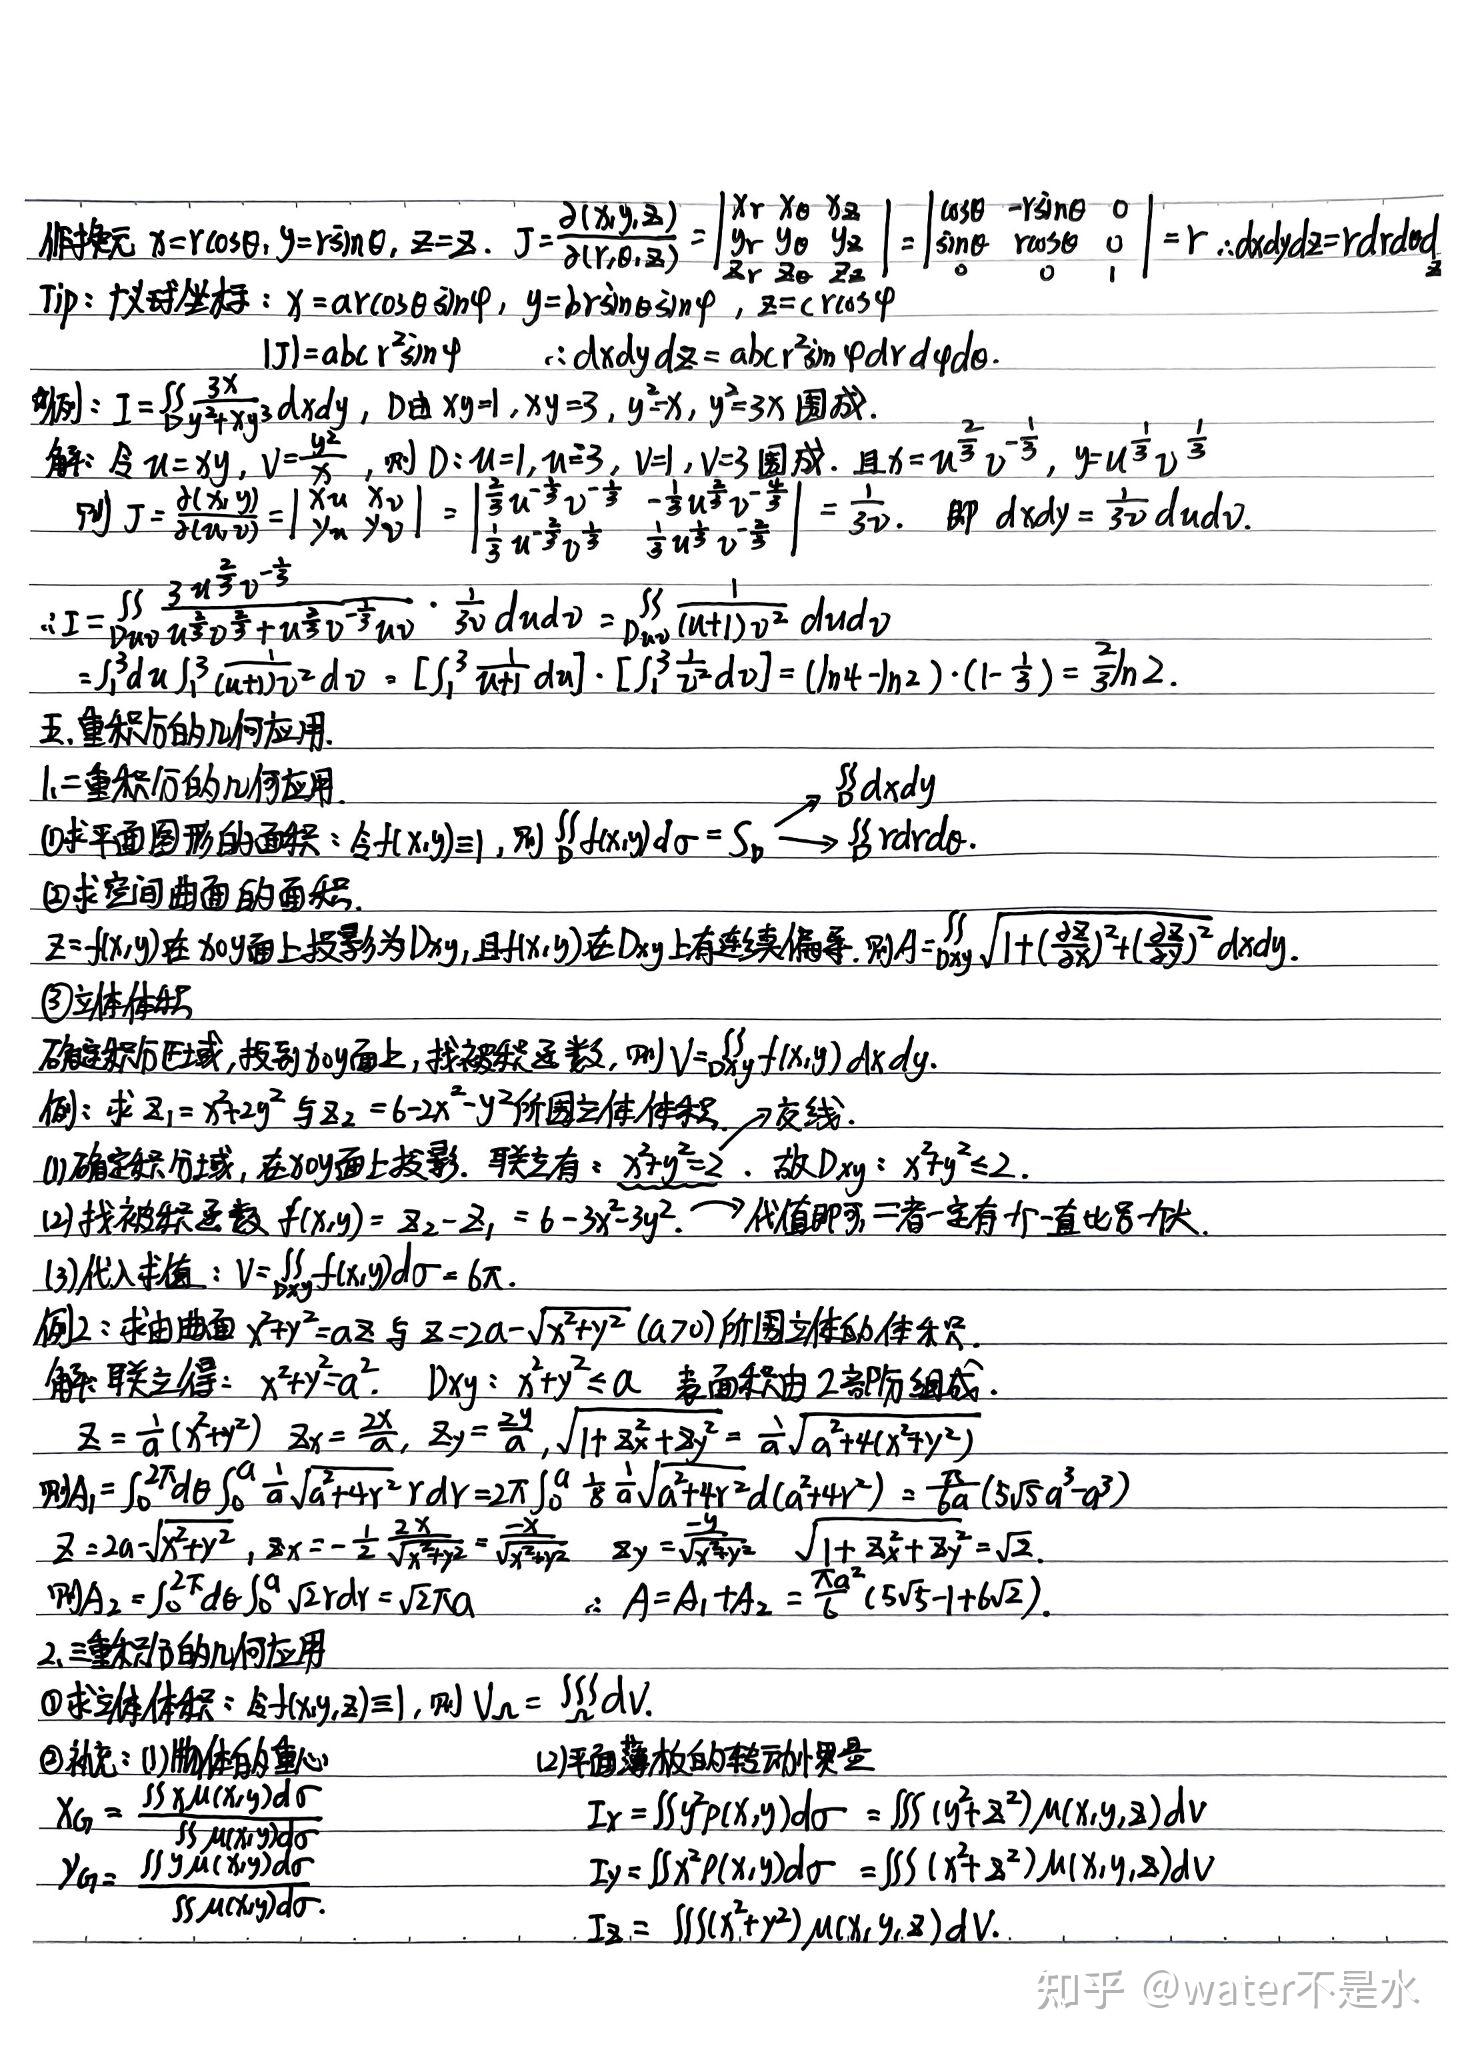 作换元 x=rcosθ, y=rsinθ, z=z. J=∂(x,y,z)/∂(r,θ,z)=|xr xθ xz; yr yθ yz; zr zθ zz|=|cosθ -rsinθ 0; sinθ rcosθ 0; 0 0 1|=r ∴dxdydz=rdrdθdz
Tip: 广义球坐标: x=arcosθsinφ, y=brsinθsinφ, z=crcosφ
|J|=abcr²sinφ ∴dxdydz=abcr²sinφdrdφdθ.
例: I=∬_D 3x/(y²+xy³) dxdy, D由xy=1, xy=3, y²=x, y²=3x围成.
解: 令u=xy, v=y²/x, 则D: u=1, u=3, v=1, v=3围成. 且x=u^(2/3)v^(-1/3), y=u^(1/3)v^(1/3)
则J=∂(x,y)/∂(u,v)=|xu xv; yu yv|=|2/3u^(-1/3)v^(-1/3) -1/3u^(2/3)v^(-4/3); 1/3u^(-2/3)v^(1/3) 1/3u^(1/3)v^(-2/3)|=1/3v. 即dxdy=1/3v dudv.
∴I=∬_Duv 3u^(2/3)v^(-1/3)/(u^(2/3)v^(2/3)+u^(2/3)v^(-1/3)uv)·1/3v dudv=∬_Duv 1/((u+1)v²) dudv
=∫₁³du∫₁³1/((u+1)v²)dv=[∫₁³1/(u+1)du]·[∫₁³1/v²dv]=(ln4-ln2)·(1-1/3)=2/3ln2.
五.重积分的几何应用.
1.二重积分的几何应用.
∬_D dxdy
①求平面图形的面积: 令f(x,y)≡1, 则∬_D f(x,y)dσ=S_D → ∬_D rdrdθ.
②求空间曲面的面积.
z=f(x,y)在xoy面上投影为Dxy, 且f(x,y)在Dxy上有连续偏导. 则A=∬_Dxy √(1+(∂z/∂x)²+(∂z/∂y)²) dxdy.
③立体体积
确定积分区域, 投到xoy面上, 找被积函数, 则V=∬_Dxy f(x,y)dxdy.
例: 求z₁=x²+2y²与z₂=6-2x²-y²所围立体体积. →交线.
(1)确定积分域, 在xoy面上投影. 联立有: x²+y²=2. 故Dxy: x²+y²≤2.
(2)找被积函数f(x,y)=z₂-z₁=6-3x²-3y². →代值即可, 二者一定有一个一直比另一个大.
(3)代入求值: V=∬_Dxy f(x,y)dσ=6π.
例2: 求由曲面x²+y²=az与z=2a-√(x²+y²) (a>0)所围立体的体积.
解: 联立得: x²+y²=a². Dxy: x²+y²≤a 表面积由2部分组成.
z=1/a(x²+y²) zx=2x/a, zy=2y/a, √(1+zx²+zy²)=1/a√(a²+4(x²+y²))
则A₁=∫₀^2π dθ∫₀^a 1/a√(a²+4r²)rdr=2π∫₀^a 1/8 1/a√(a²+4r²)d(a²+4r²)=π/6a(5√5a³-a³)
z=2a-√(x²+y²), zx=-1/2 2x/√(x²+y²)=-x/√(x²+y²) zy=-y/√(x²+y²) √(1+zx²+zy²)=√2.
则A₂=∫₀^2π dθ∫₀^a √2rdr=√2πa ∴A=A₁+A₂=πa²/6(5√5-1+6√2).
2.三重积分的几何应用
①求立体体积: 令f(x,y,z)≡1, 则V_Ω=∭_Ω dV.
②补充: (1)物体的重心 (2)平面薄板的转动惯量
x_G=∬xμ(x,y)dσ/∬μ(x,y)dσ Ix=∬y²ρ(x,y)dσ=∭(y²+z²)μ(x,y,z)dV
y_G=∬yμ(x,y)dσ/∬μ(x,y)dσ. Iy=∬x²ρ(x,y)dσ=∭(x²+z²)μ(x,y,z)dV
Iz=∭(x²+y²)μ(x,y,z)dV.
知乎 @water不是水